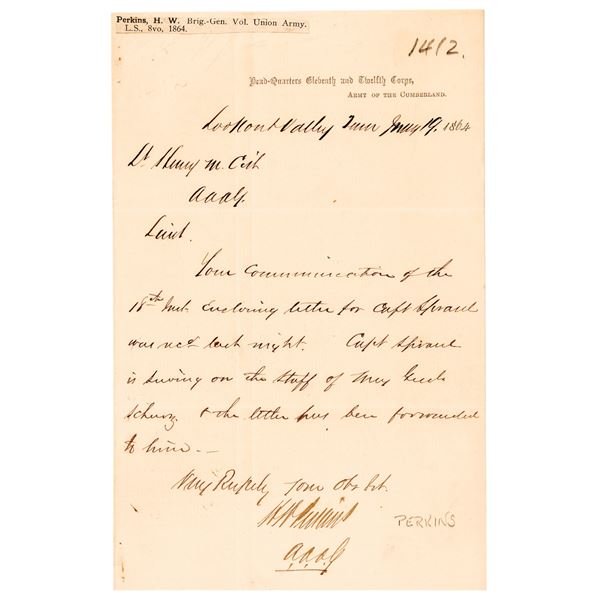 Perkins, H. W. Brig.-Gen. Vol. Union Army.
L.S., 8vo, 1864.
1412.
Head-Quarters Eleventh and Twelfth Corps,
Army of the Cumberland.
Lookout Valley Tenn 19. 1864
Lt Henry M. Cist
A.A.A.G.
Lieut.
Your Communication of the
18th Inst. Enclosing letter for Capt Sproul
was recd last night. Capt Sproul
is serving on the staff of Maj Genl
Schurz & the letter has been forwarded
to him.—
Very Respctly Your Obt Svt.
H W Perkins
a.a.a.G
PERKINS